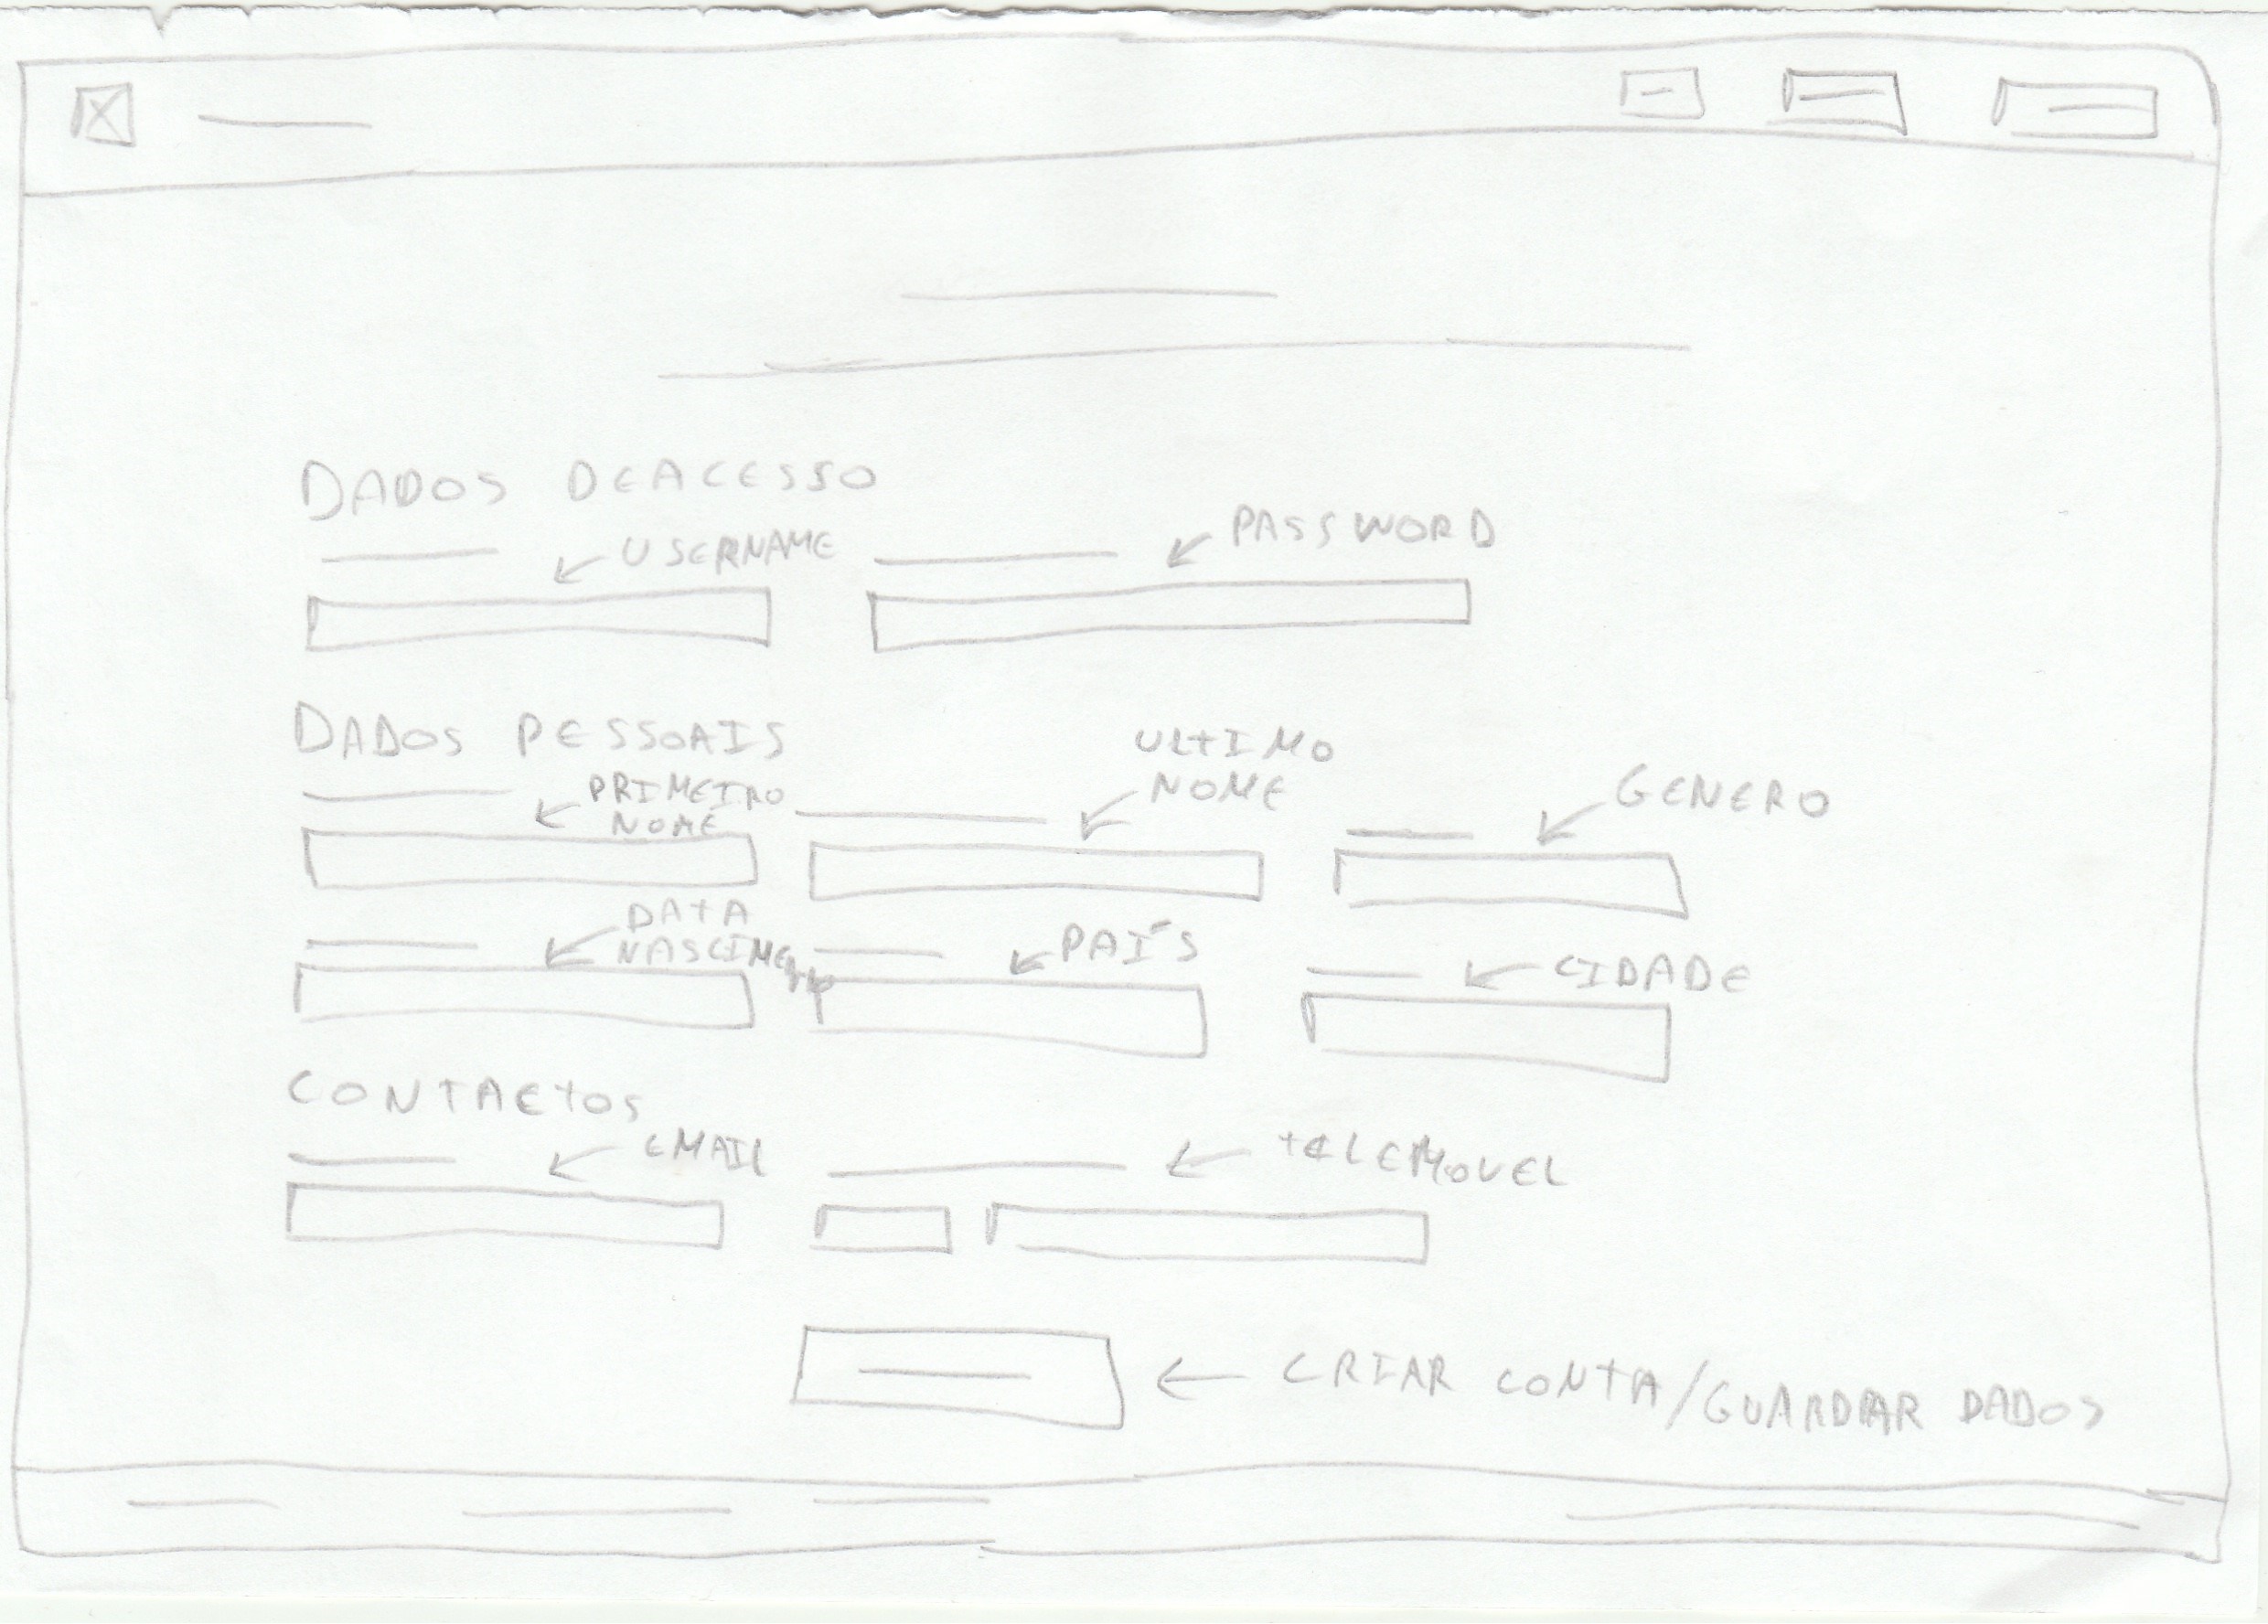 DADOS DE ACESSO
USERNAME
PASSWORD
DADOS PESSOAIS
PRIMEIRO
NOME
ULTIMO
NOME
GENERO
DATA
NASCIMENTO
PAÍS
CIDADE
CONTACTOS
EMAIL
TELEMOVEL
CRIAR CONTA/GUARDAR DADOS